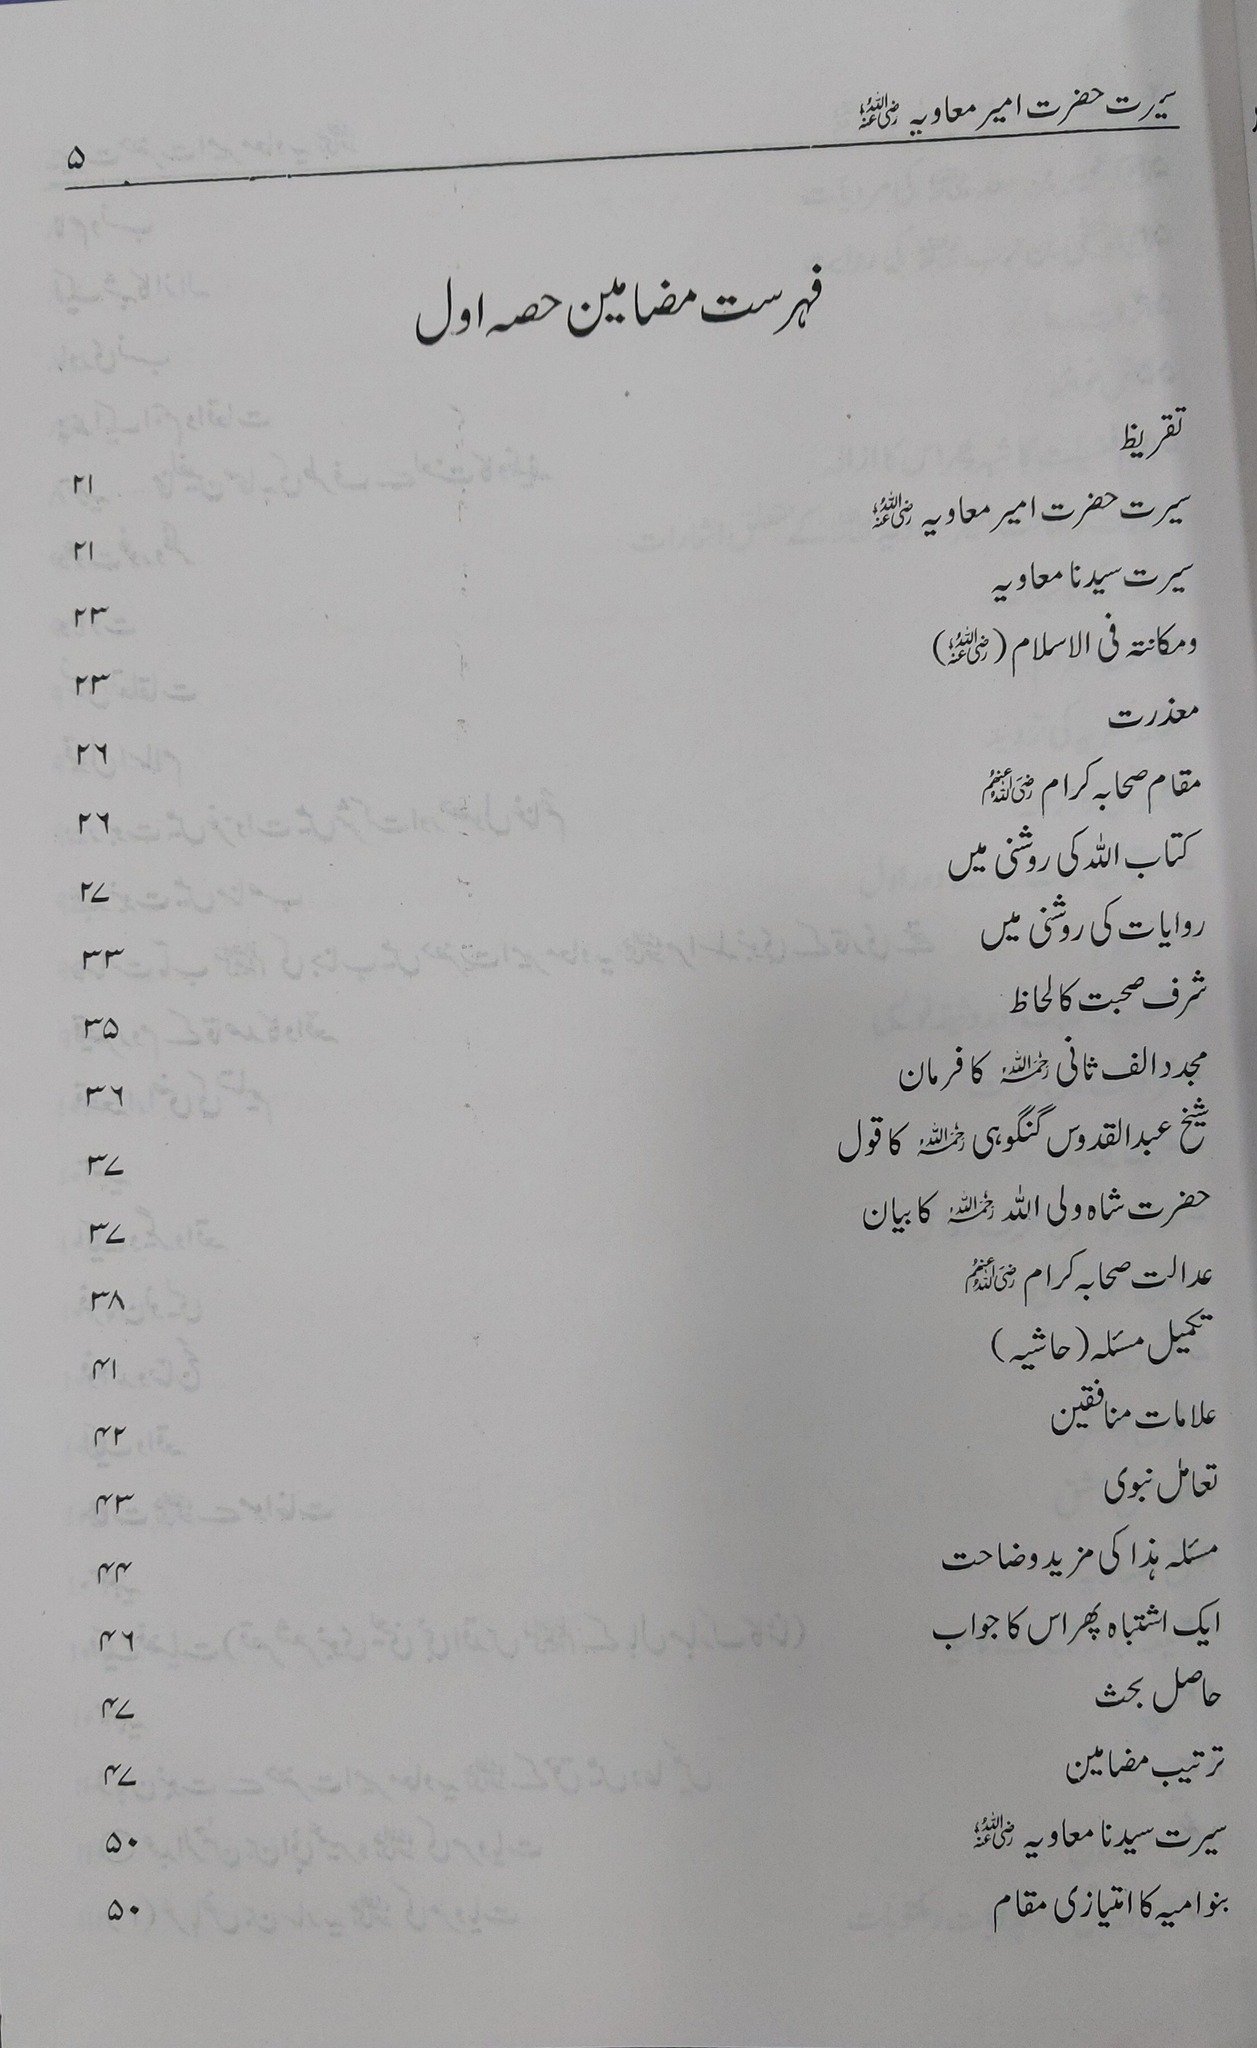 سیرت حضرت امیر معاویہ رضی اللہ عنہ ۵
فہرست مضامین حصہ اول
تقریظ ۲۱
سیرت حضرت امیر معاویہ رضی اللہ عنہ ۲۱
سیرت سیدنا معاویہ ۲۳
ومکانتہ فی الاسلام (رضی اللہ عنہ) ۲۳
معذرت ۲۶
مقام صحابہ کرام رضی اللہ عنہم ۲۶
کتاب اللہ کی روشنی میں ۲۷
روایات کی روشنی میں ۳۳
شرف صحبت کا لحاظ ۳۵
مجدد الف ثانی رحمہ اللہ کا فرمان ۳۶
شیخ عبدالقدوس گنگوہی رحمہ اللہ کا قول ۳۷
حضرت شاہ ولی اللہ رحمہ اللہ کا بیان ۳۷
عدالت صحابہ کرام رضی اللہ عنہم ۳۸
تکمیل مسئلہ (حاشیہ) ۴۱
علامات منافقین ۴۲
تعامل نبوی ۴۳
مسئلہ ہذا کی مزید وضاحت ۴۴
ایک اشتباہ پھر اس کا جواب ۴۶
حاصل بحث ۴۷
ترتیب مضامین ۴۷
سیرت سیدنا معاویہ رضی اللہ عنہ ۵۰
بنو امیہ کا امتیازی مقام ۵۰